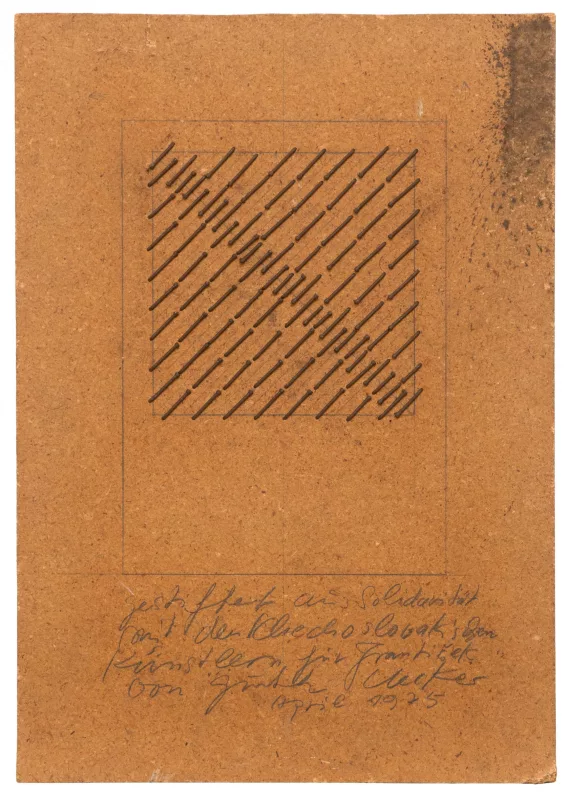 gestiftet aus Solidarität
mit den tschechoslowakischen
Künstlern für František
von Günther Uecker
April 1975